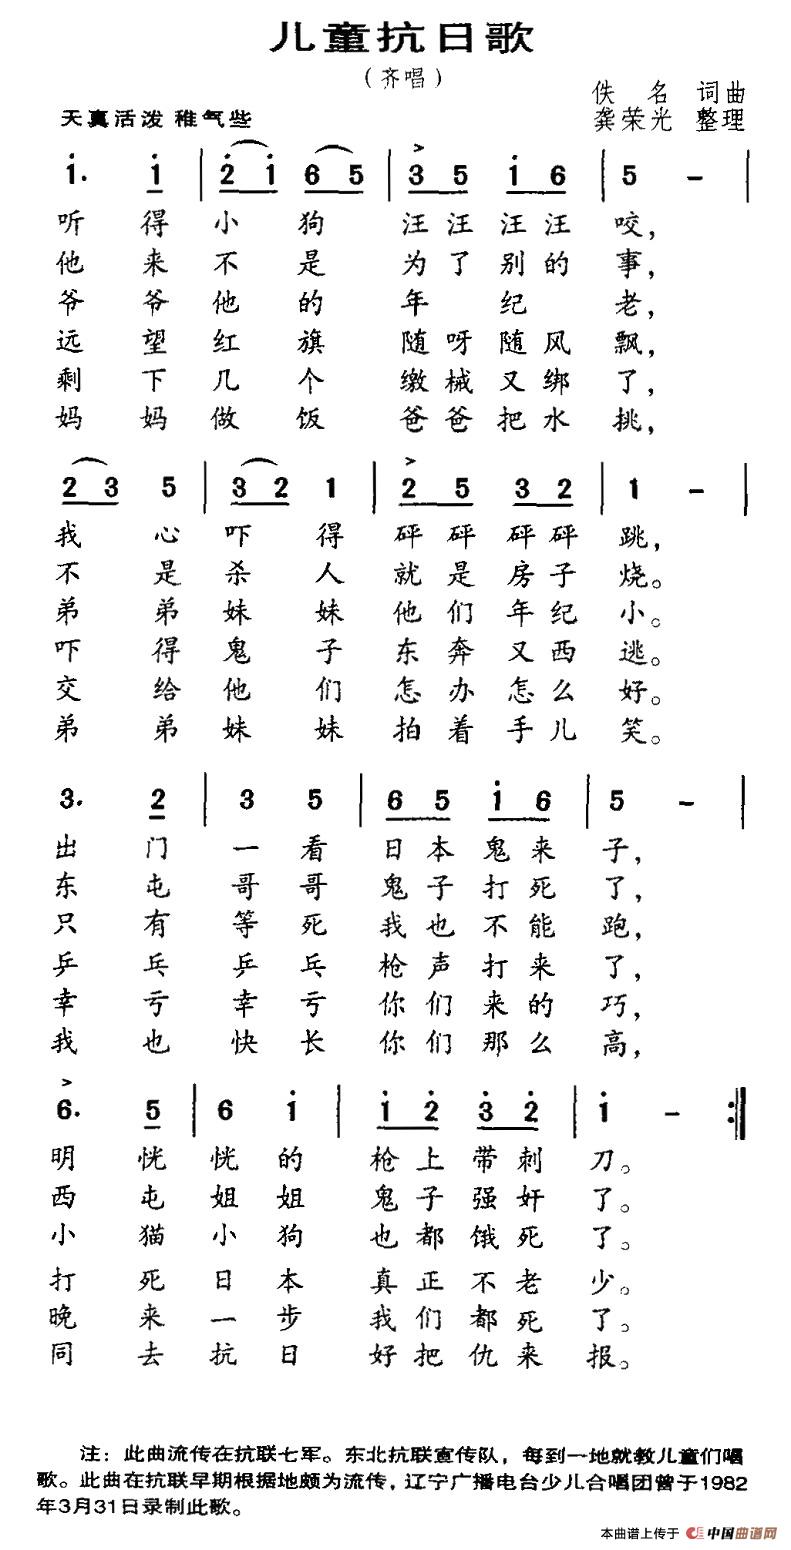 儿童抗日歌
（齐唱）
佚 名 词曲
天真活泼 稚气些
龚荣光 整理
1. 1 | 2 1 6 5 | 3 5 1 6 | 5 - |
听得小狗 汪汪汪汪咬，
他来不是 为了别的事，
爷爷他的 年纪老，
远望红旗 随呀随风飘，
剩下几个 缴械又绑了，
妈妈做饭 爸爸把水挑，
2 3 5 | 3 2 1 | 2 5 3 2 | 1 - |
我心吓得 砰砰砰砰跳，
不是杀人 就是房子烧。
弟弟妹妹 他们年纪小。
吓得鬼子 东奔又西逃。
交给他们 怎办怎么好。
弟弟妹妹 拍着手儿笑。
3. 2 | 3 5 | 6 5 1 6 | 5 - |
出门一看 日本鬼来子，
东屯哥哥 鬼子打死了，
只有等死 我也不能跑，
乒乓乒乓 枪声打来了，
幸亏幸亏 你们来的巧，
我也快长 你们那么高，
6. 5 | 6 1 | 1 2 3 2 | 1 - :|
明恍恍的 枪上带刺刀。
西屯姐姐 鬼子强奸了。
小猫小狗 也都饿死了。
打死日本 真正不老少。
晚来一步 我们都死了。
同去抗日 好把仇来报。
注：此曲流传在抗联七军。东北抗联宣传队，每到一地就教儿童们唱
歌。此曲在抗联早期根据地颇为流传，辽宁广播电台少儿合唱团曾于1982
年3月31日录制此歌。
本曲谱上传于 中国曲谱网